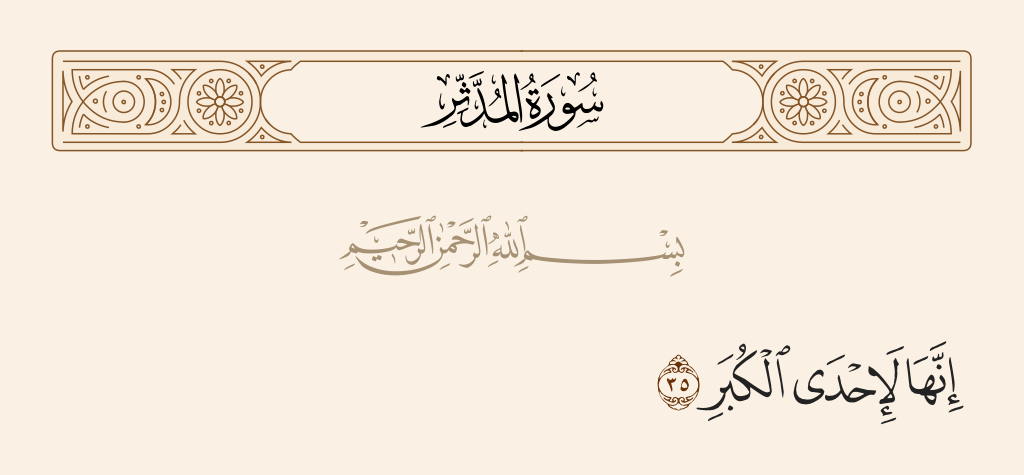 سُورَةُ المُدَّثِّرِ
بِسْمِ ٱللَّهِ ٱلرَّحْمَٰنِ ٱلرَّحِيمِ
إِنَّهَا لَإِحْدَى ٱلْكُبَرِ ٣٥